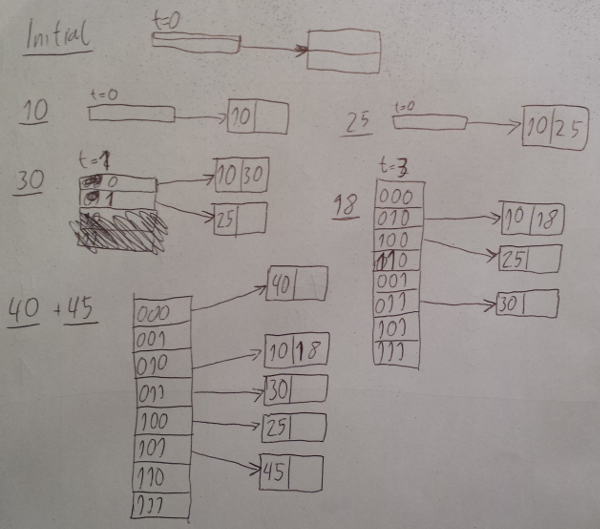 Initial
t=0
10
t=0
10
25
t=0
10 25
30
t=1
0
1
10 30
25
18
t=3
000
010
100
110
001
011
101
111
10 18
25
30
40 + 45
000
001
010
011
100
101
110
111
40
10 18
30
25
45